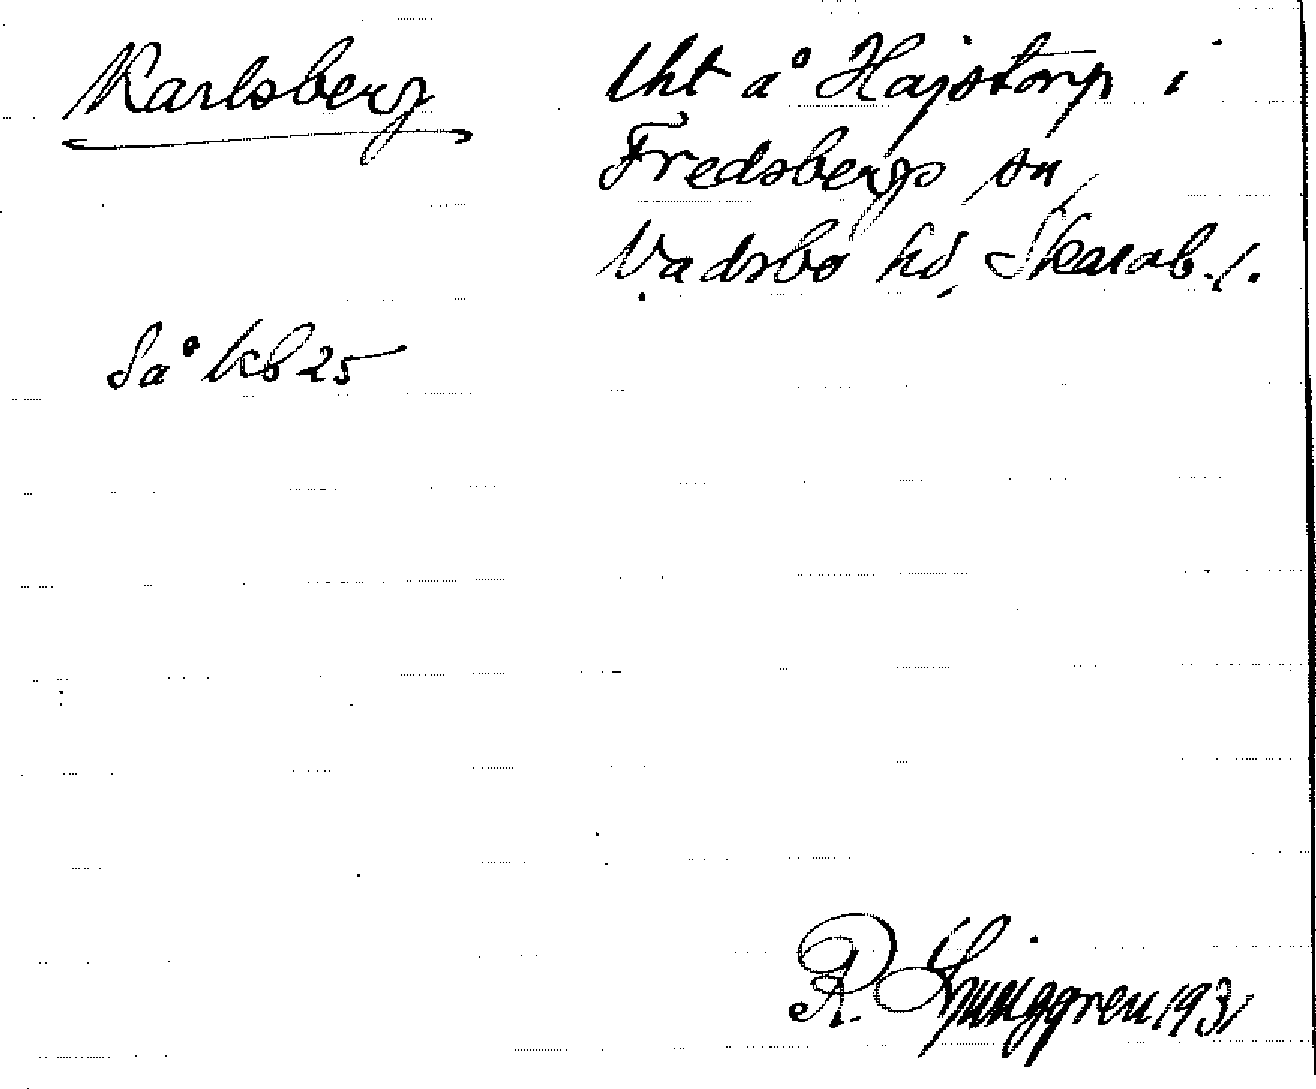 Karlsberg
lht å Hajstorp i
Fredsbergs sn
Vadsbo hd, Skarab. l.
Så kb 25
R. Ljunggren 1931